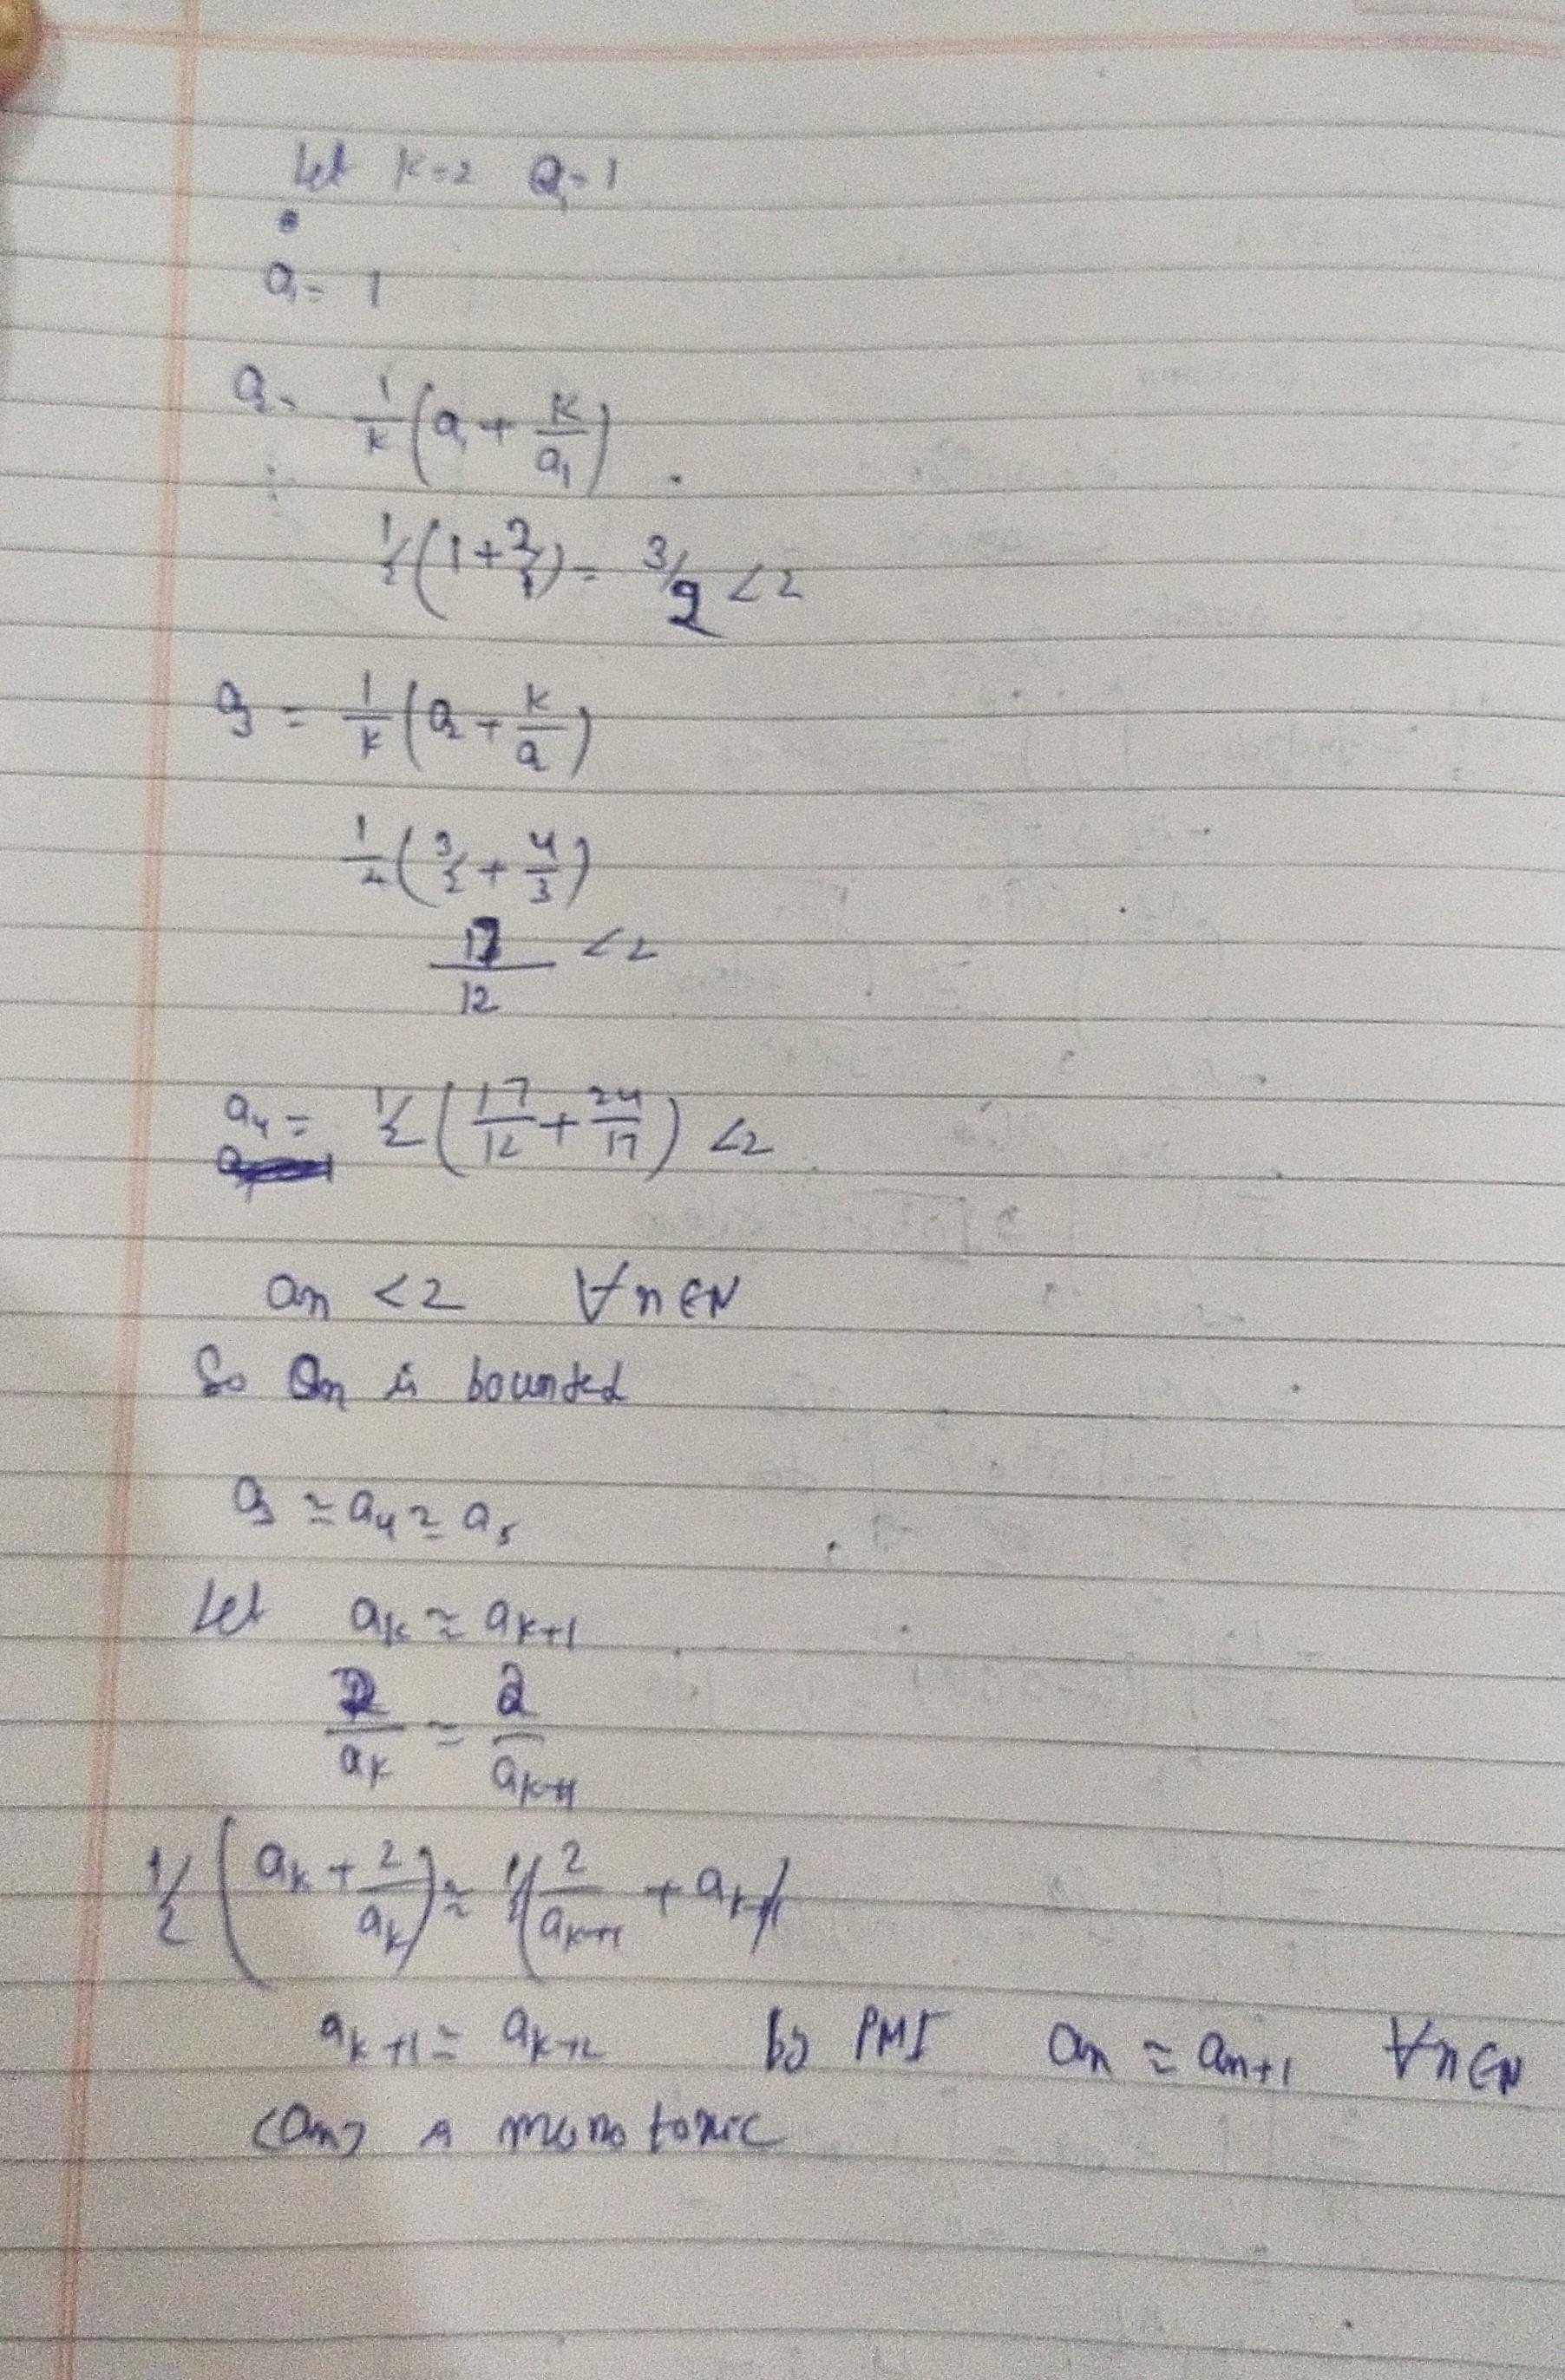 Let K=2 a₁=1
a₁= 1
a₂= 1/K (a₁ + K/a₁)
1/2 (1+2/1) = 3/2 <2
a₃ = 1/K (a₂ + K/a₂)
1/2 (3/2 + 4/3)
17/12 <2
a₄= 1/2 (17/12 + 24/17) <2
an <2 ∀n∈N
So an is bounded
a₃ ≃ a₄ ≃ a₅
Let aₖ ≃ aₖ₊₁
2/aₖ ≃ 2/aₖ₊₁
1/2 (aₖ + 2/aₖ) ≃ 1/2 (2/aₖ₊₁ + aₖ₊₁)
aₖ₊₁ ≃ aₖ₊₂ by PMI an ≃ an+1 ∀n∈N
<an> is monotonic